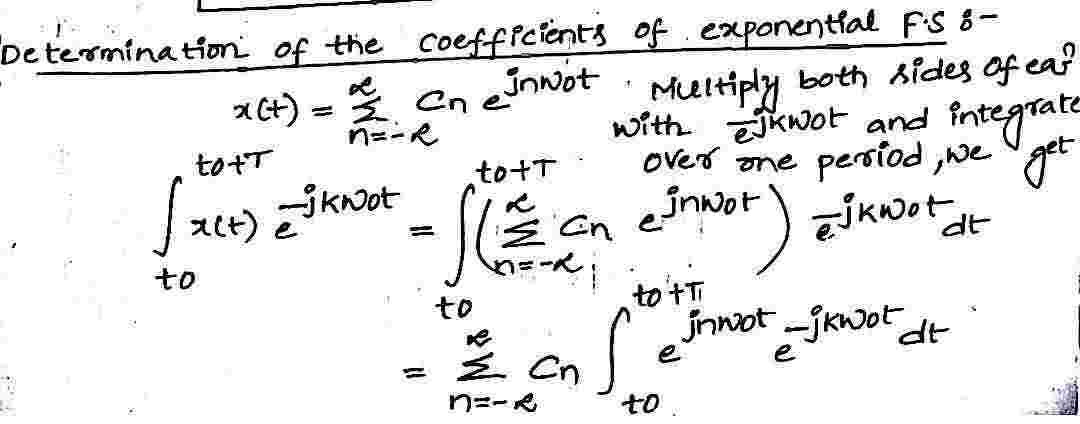 Determination of the coefficients of exponential F.S :-
x(t) = ∑_{n=-∞}^{∞} Cn e^{jnω0t} . Multiply both sides of eqn
with e^{-jkω0t} and integrate
over one period, we get
∫_{t0}^{t0+T} x(t) e^{-jkω0t} = ∫_{t0}^{t0+T} ( ∑_{n=-∞}^{∞} Cn e^{jnω0t} ) e^{-jkω0t} dt
= ∑_{n=-∞}^{∞} Cn ∫_{t0}^{t0+T} e^{jnω0t} e^{-jkω0t} dt